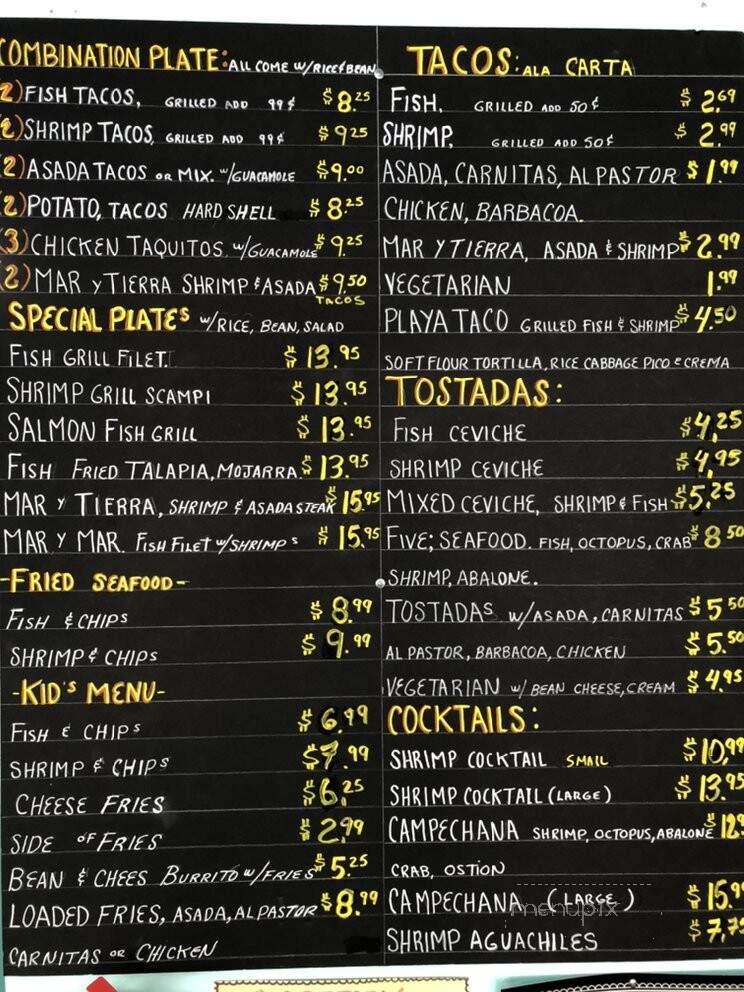 COMBINATION PLATE: ALL COME W/RICE & BEAN
(2) FISH TACOS, GRILLED ADD 99¢ $8.25
(2) SHRIMP TACOS, GRILLED ADD 99¢ $9.25
(2) ASADA TACOS OR MIX. W/GUACAMOLE $9.00
(2) POTATO, TACOS HARD SHELL $8.25
(3) CHICKEN TAQUITOS W/GUACAMOLE $9.25
(2) MAR Y TIERRA SHRIMP & ASADA $9.50
TACOS
SPECIAL PLATES W/RICE, BEAN, SALAD
FISH GRILL FILET. $13.95
SHRIMP GRILL SCAMPI $13.95
SALMON FISH GRILL $13.95
FISH FRIED TALAPIA, MOJARRA $13.95
MAR Y TIERRA, SHRIMP & ASADA STEAK $15.95
MAR Y MAR. FISH FILET W/SHRIMPS $15.95
-FRIED SEAFOOD-
FISH & CHIPS $8.99
SHRIMP & CHIPS $9.99
-KID'S MENU-
FISH & CHIPS $6.99
SHRIMP & CHIPS $7.99
CHEESE FRIES $6.25
SIDE OF FRIES $2.99
BEAN & CHEES BURRITO W/FRIES $5.25
LOADED FRIES, ASADA, AL PASTOR $8.99
CARNITAS OR CHICKEN
TACOS: ALA CARTA
FISH, GRILLED ADD 50¢ $2.69
SHRIMP, GRILLED ADD 50¢ $2.99
ASADA, CARNITAS, AL PASTOR $1.99
CHICKEN, BARBACOA.
MAR Y TIERRA, ASADA & SHRIMP $2.99
VEGETARIAN 1.99
PLAYA TACO GRILLED FISH & SHRIMP $4.50
SOFT FLOUR TORTILLA, RICE CABBAGE PICO E CREMA
TOSTADAS:
FISH CEVICHE $4.25
SHRIMP CEVICHE $4.95
MIXED CEVICHE, SHRIMP & FISH $5.25
FIVE; SEAFOOD. FISH, OCTOPUS, CRAB $8.50
SHRIMP, ABALONE.
TOSTADAS W/ASADA, CARNITAS $5.50
AL PASTOR, BARBACOA, CHICKEN $5.50
VEGETARIAN W/ BEAN CHEESE, CREAM $4.95
COCKTAILS:
SHRIMP COCKTAIL SMALL $10.99
SHRIMP COCKTAIL (LARGE) $13.95
CAMPECHANA SHRIMP, OCTOPUS, ABALONE
CRAB, OSTION
CAMPECHANA (LARGE) $15.99
menupix
SHRIMP AGUACHILES $7.75